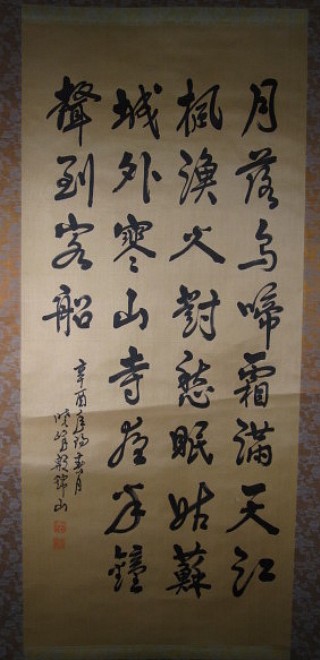 月落烏啼霜滿天江
楓漁火對愁眠姑蘇
城外寒山寺夜半鐘
聲到客船
辛酉年陽春月
錦山